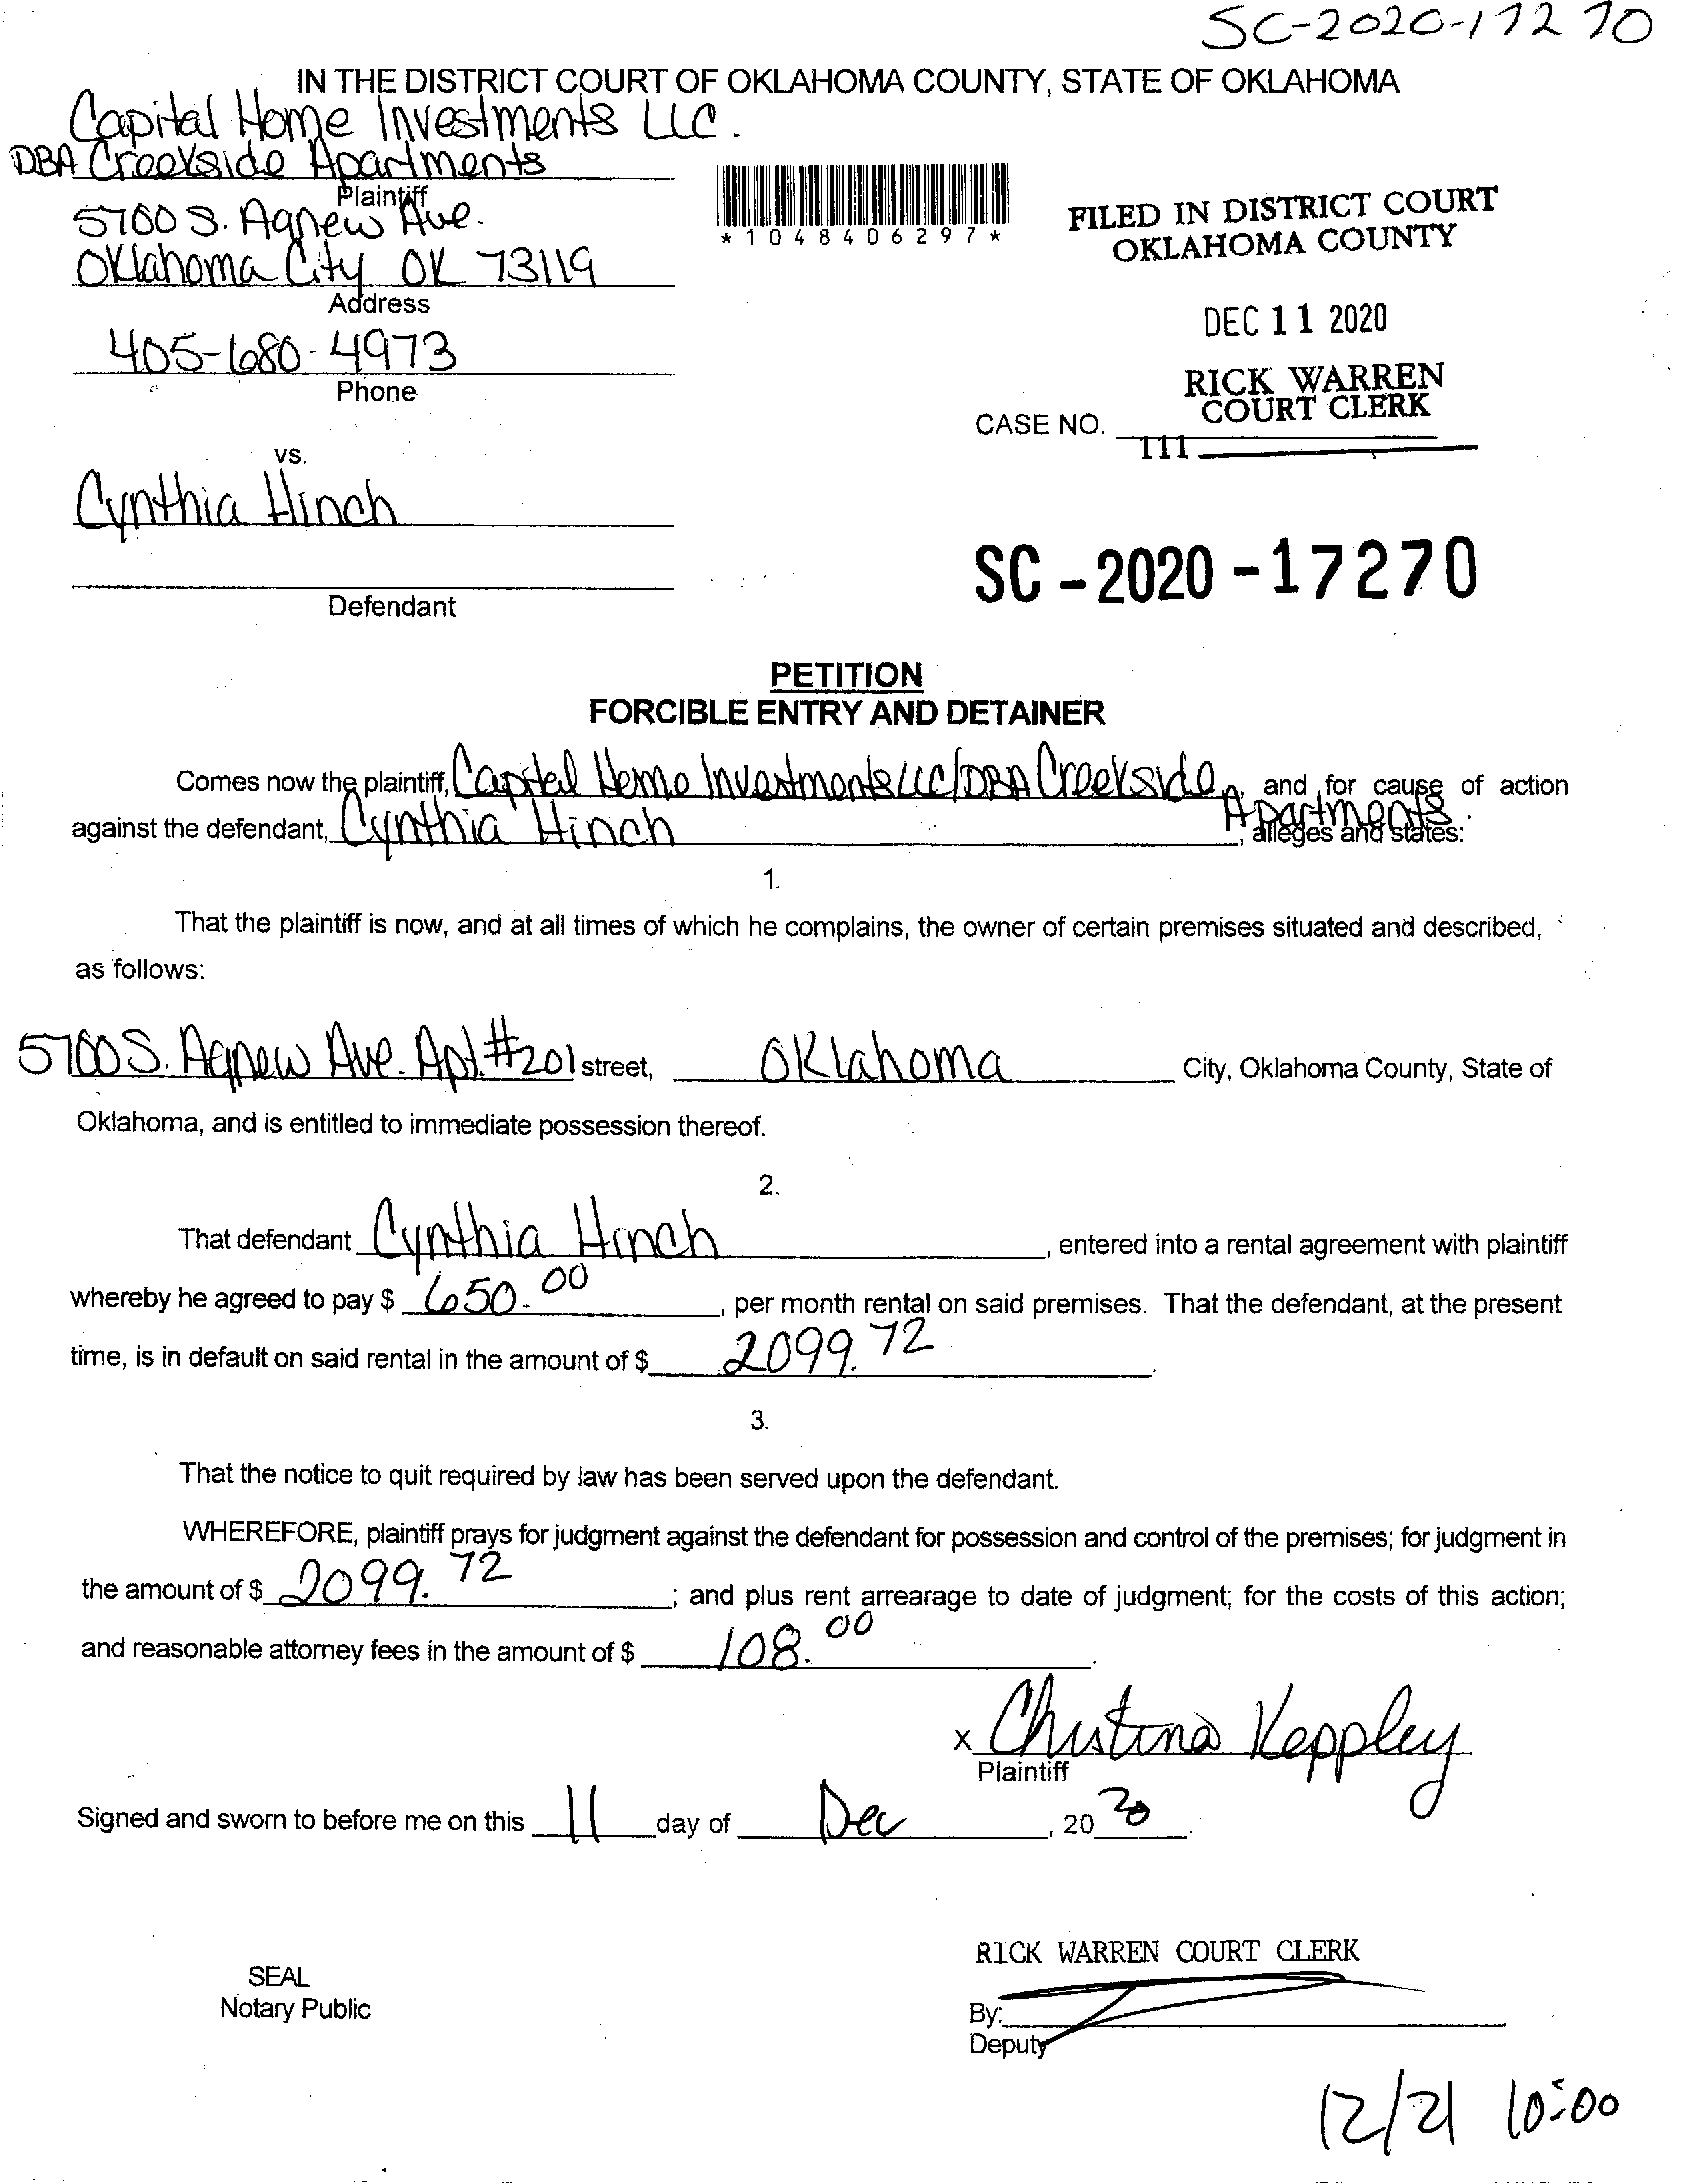 SC-2020-17270
IN THE DISTRICT COURT OF OKLAHOMA COUNTY, STATE OF OKLAHOMA
Capital Home Investments LLC.
DBA Creekside Apartments
Plaintiff
5700 S. Agnew Ave.
Oklahoma City OK 73119
Address
405-680-4973
Phone
*1048406297*
FILED IN DISTRICT COURT
OKLAHOMA COUNTY
DEC 11 2020
RICK WARREN
COURT CLERK
CASE NO.
111
vs.
Cynthia Hinch
Defendant
SC-2020-17270
PETITION
FORCIBLE ENTRY AND DETAINER
Comes now the plaintiff, Capital Home Investments LLC/DBA Creekside Apartments, and for cause of action
against the defendant, Cynthia Hinch, alleges and states:
1.
That the plaintiff is now, and at all times of which he complains, the owner of certain premises situated and described,
as follows:
5700 S. Agnew Ave. Apt. #201 street, Oklahoma City, Oklahoma County, State of
Oklahoma, and is entitled to immediate possession thereof.
2.
That defendant Cynthia Hinch, entered into a rental agreement with plaintiff
whereby he agreed to pay $ 650.00, per month rental on said premises. That the defendant, at the present
time, is in default on said rental in the amount of $ 2099.72.
3.
That the notice to quit required by law has been served upon the defendant.
WHEREFORE, plaintiff prays for judgment against the defendant for possession and control of the premises; for judgment in
the amount of $ 2099.72; and plus rent arrearage to date of judgment; for the costs of this action;
and reasonable attorney fees in the amount of $ 108.00.
x Christina Keppley
Plaintiff
Signed and sworn to before me on this 11 day of Dec, 20 20.
SEAL
Notary Public
RICK WARREN COURT CLERK
By:
Deputy
12/21 10:00